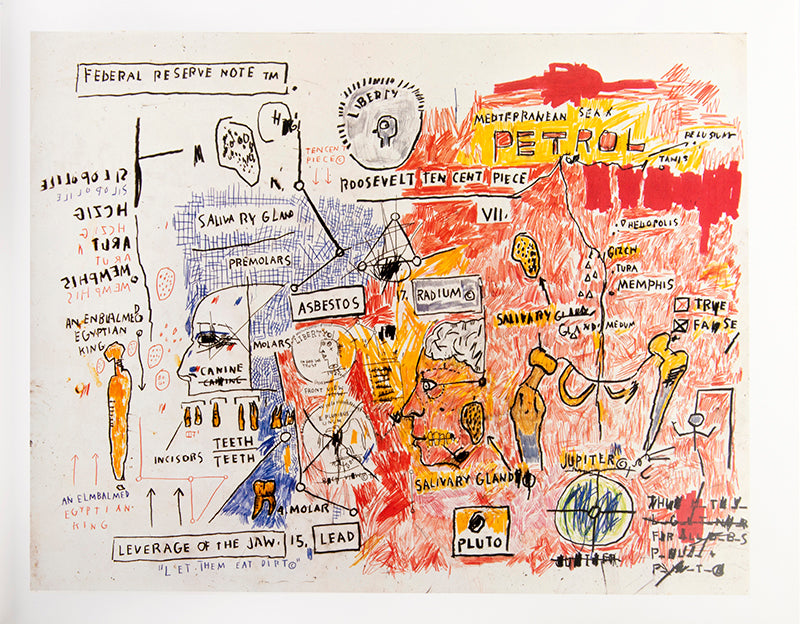 FEDERAL RESERVE NOTE TM.
LIBERTY
TEN CENT
PIECE©
ROOSEVELT TEN CENT PIECE
VII.
MEDTERRANEAN SEA
PETROL
PELUSIUM
TANIS
HELIOPOLIS
GIZEH
TURA
MEMPHIS
MEDUM
TRUE
FALSE
SALIVARY GLAND
PREMOLARS
MOLARS
CANINE
CANINE
INCISORS
TEETH
TEETH
A MOLAR
ASBESTOS
17.
RADIUM©
LIBERTY©
FRONT VIEW
SALIVARY GLAND
GLAND
SALIVARY GLAND
MEMPHIS
MEMPHIS
AN ENBALMED
EGYPTIAN
KING
AN ELMBALMED
EGYPTIAN
KING
LEVERAGE OF THE JAW.
15.
LEAD
"LET THEM EAT DIRT©"
PLUTO
JUPITER©
JUPITER